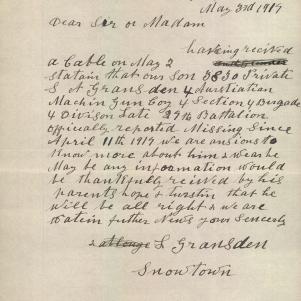 May 3rd 1917
Dear Sir or Madam
having recived
a Cable on May 2
statain that our Son 3830 Private
S A Gransden 4 Australian
Machin Gun Coy 4 Section 4 Brigade
4 Divison Late 29th Battalion
Offically reported Missing Since
April 11th 1917 we are ansions to
Know more about him & wear he
May be any information would
be thankfully reicived by his
parents hope & turstin that he
will be all right & we are
watein futher News your Sencerly
S Gransden
Snowtown